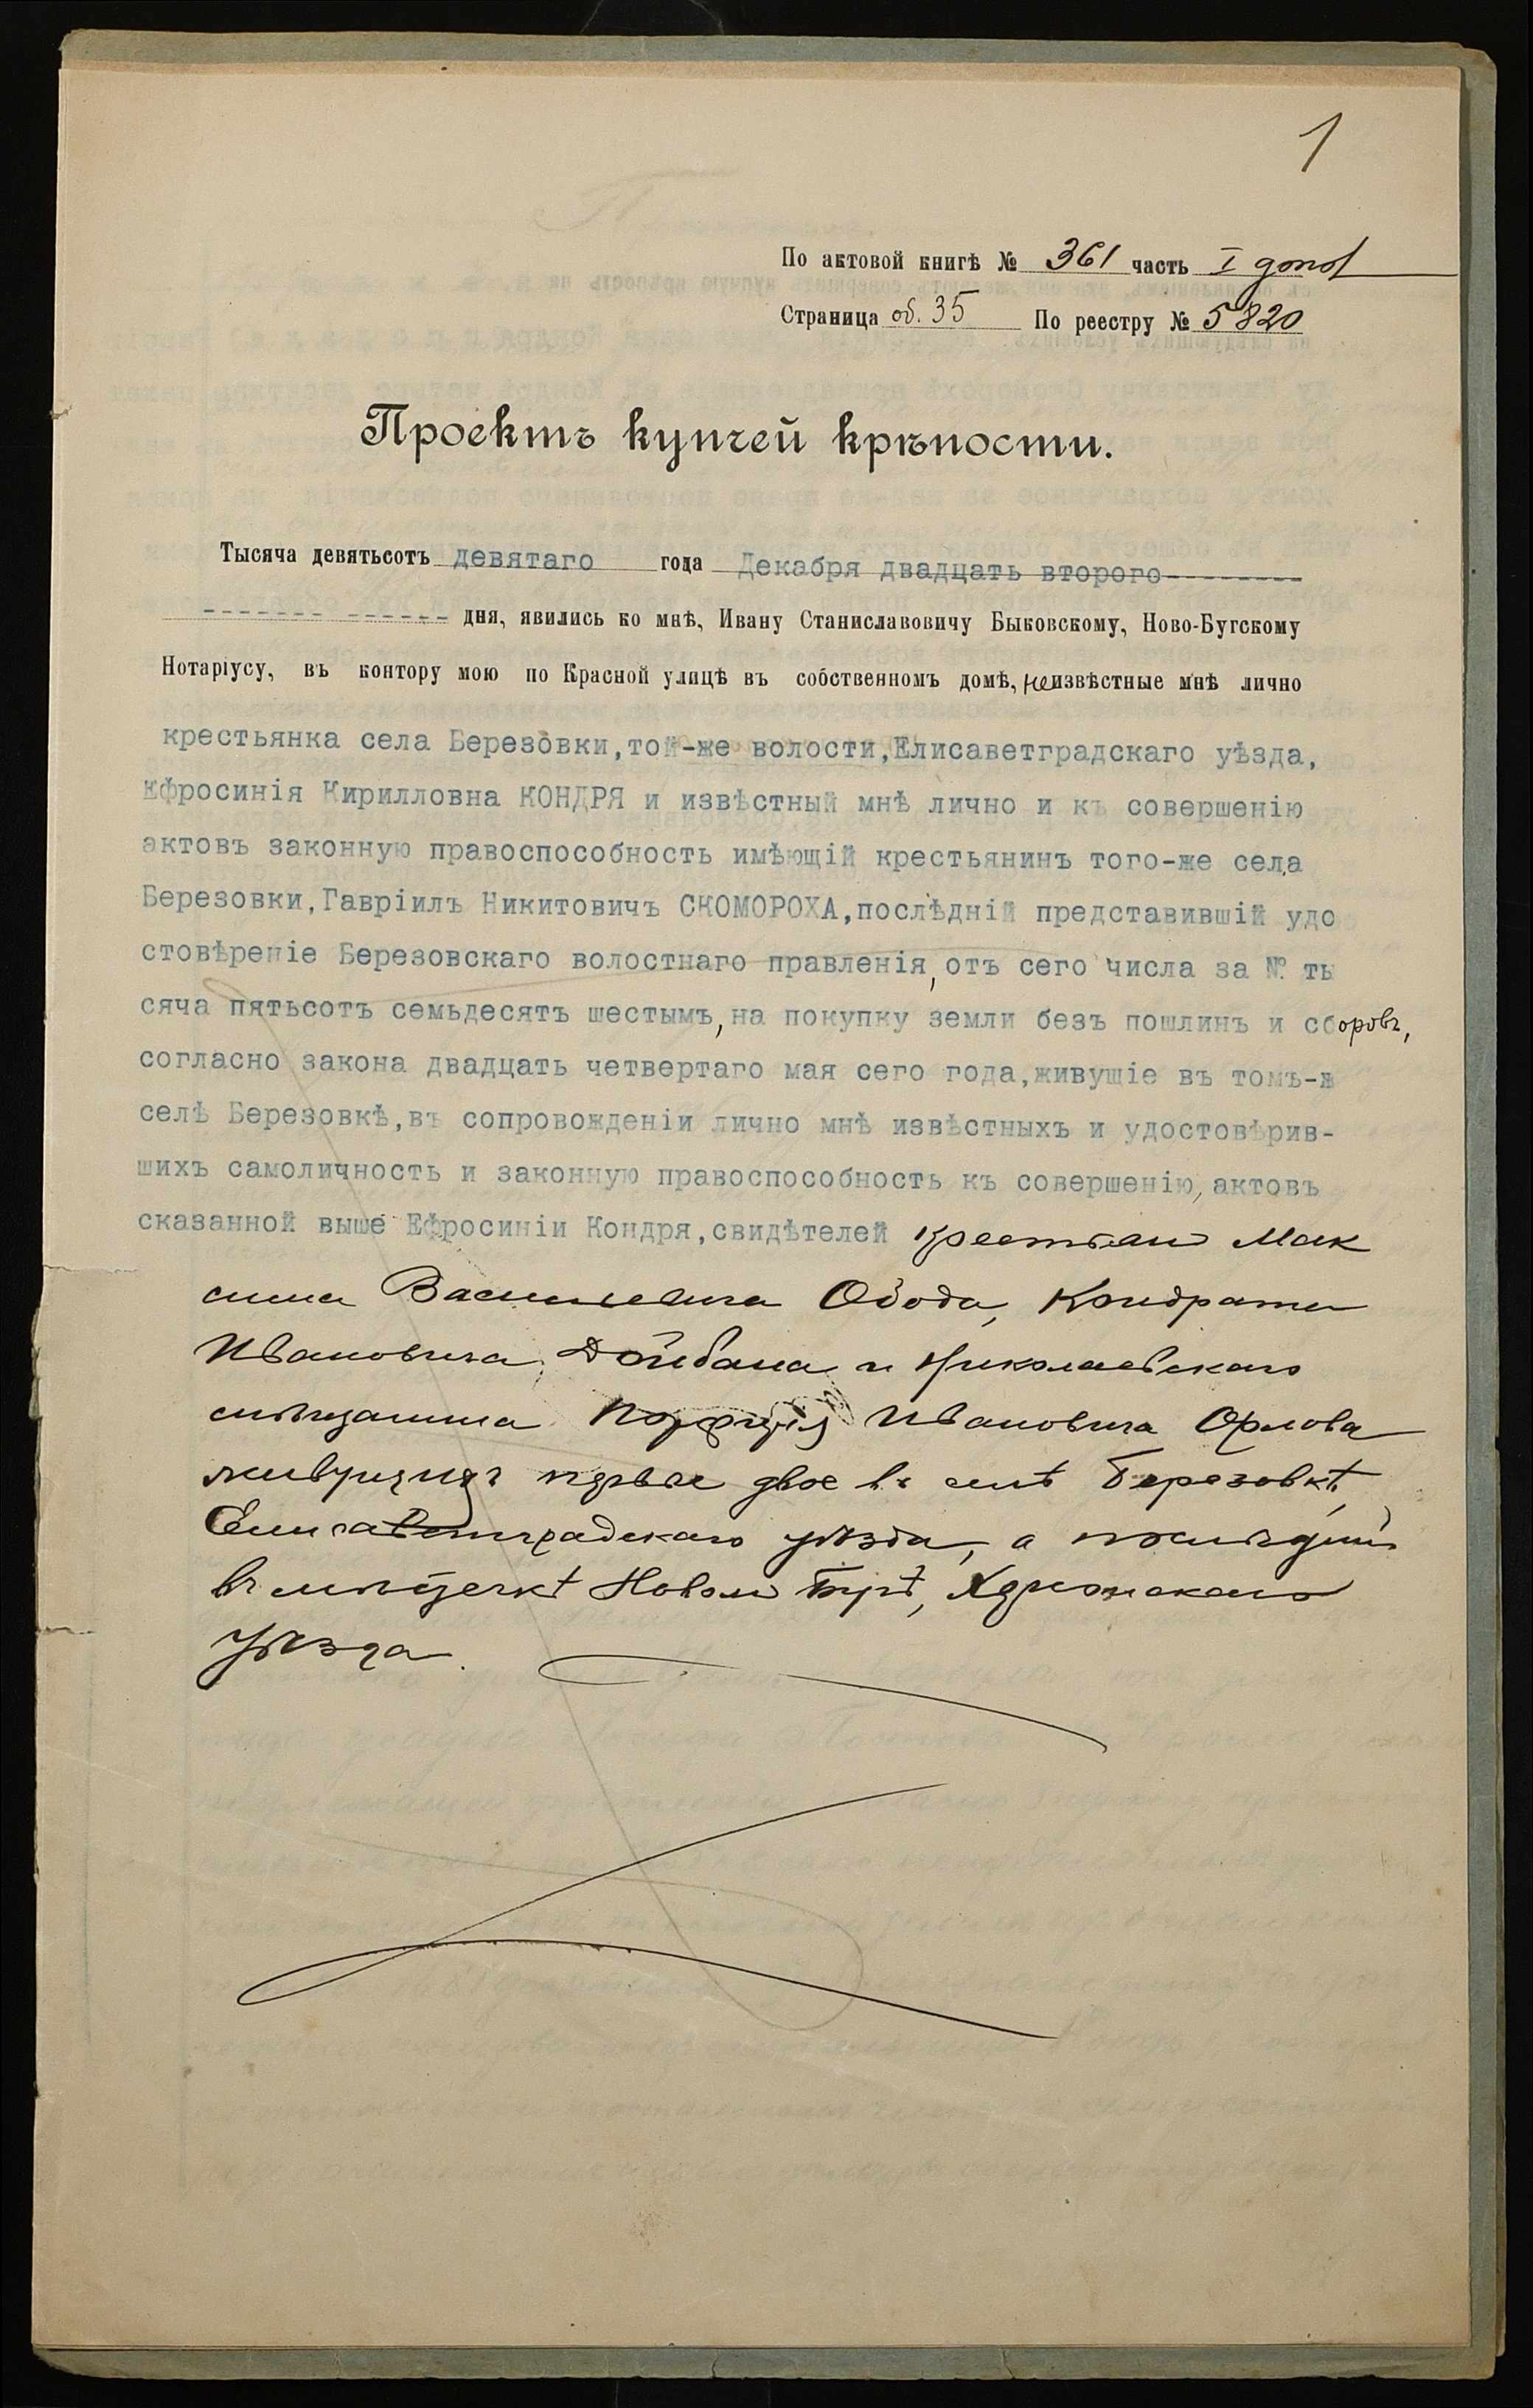 1
По актовой книгѣ № 361 часть I допол
Страница об. 35 По реестру № 5820
Проектъ купчей крѣпости.
Тысяча девятьсотъ девятаго года Декабря двадцать второго--------
------- ------ дня, явились ко мнѣ, Ивану Станиславовичу Быковскому, Ново-Бугскому
Нотаріусу, въ контору мою по Красной улицѣ въ собственномъ домѣ, неизвѣстные мнѣ лично
крестьянка села Березовки,той-же волости,Елисаветградскаго уѣзда,
Ефросинія Кирилловна КОНДРЯ и извѣстный мнѣ лично и къ совершенію
актовъ законную правоспособность имѣющій крестьянинъ того-же села
Березовки,Гавріилъ Никитовичъ СКОМОРОХА,послѣдній представившій удо
стовѣреніе Березовскаго волостнаго правленія, отъ сего числа за № ты
сяча пятьсотъ семьдесятъ шестымъ, на покупку земли безъ пошлинъ и сборовъ,
согласно закона двадцать четвертаго мая сего года,живущіе въ томъ-ж
селѣ Березовкѣ,въ сопровожденіи лично мнѣ извѣстныхъ и удостовѣрив-
шихъ самоличность и законную правоспособность къ совершенію, актовъ
сказанной выше Ефросиніи Кондря,свидѣтелей крестьян Мак
сима Васильевича Обода, Кондрата
Ивановича Дойбана и Николаевскаго
мѣщанина Порфирія Ивановича Орлова
живущихъ первые двое въ селѣ Березовкѣ,
Елисаветградскаго уѣзда, а послѣдній
въ мѣстечкѣ Новом Бугѣ, Херсонскаго
уѣзда.